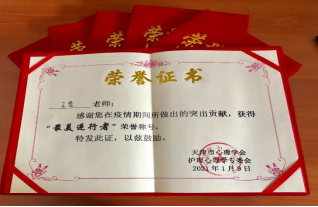 荣誉证书
老师：
感谢您在疫情期间所做出的突出贡献，获得
“最美逆行者”荣誉称号。
特发此证，以兹鼓励。
天津市心理学会
护理心理学专委会
2021年1月9日